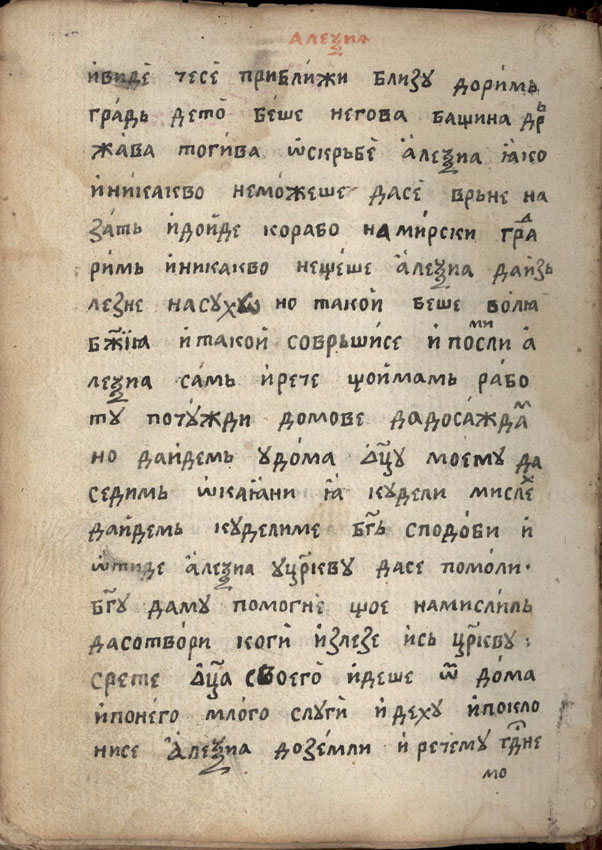 Алеѯиа
и҆виде́ тесе́ прибли́жи близу доримь
гра́дь дето̀ беше негова башина дрь
жава тогива ѡ҆скрьбѐ а҆леѯиа ꙗ҆ко
и҆ника́кво немо́жеше дасѐ врьне на
за́ть и҆до́йде корабо намѝрски граⷣ
римь и҆никакво неще́ше а҆леѯиа даи҆зь
лезне насухѡ но такой беше волꙗ
бж҃їꙗ и҆такой соврьши́се и҆ послими а҆
леѯиа са́мь и҆рече щои҆мамь рабо
ту поту́жди домове дадоса́ждаⷨ
но даи҆демь удо́ма ѿц҃у моему да
седимь ѡ҆каꙗни ꙗ҆ кудели мислеⷯ
даи҆демь куделиме бг҃ь сподоби и҆
ѡ҆тиде а҆леѯиа уцр҃кву дасе помо́ли·
бг҃у даму помогнѐ щое намисли́ль
дасотво́ри когѝ и҆злезе и҆сь цр҃кву:
срете ѿц҃а своего̀ и҆деше ѿ до́ма
и҆понего млого слугѝ и҆деху и҆покло
нисе а҆леѯиа доземли и҆ речему гд҃не
мо